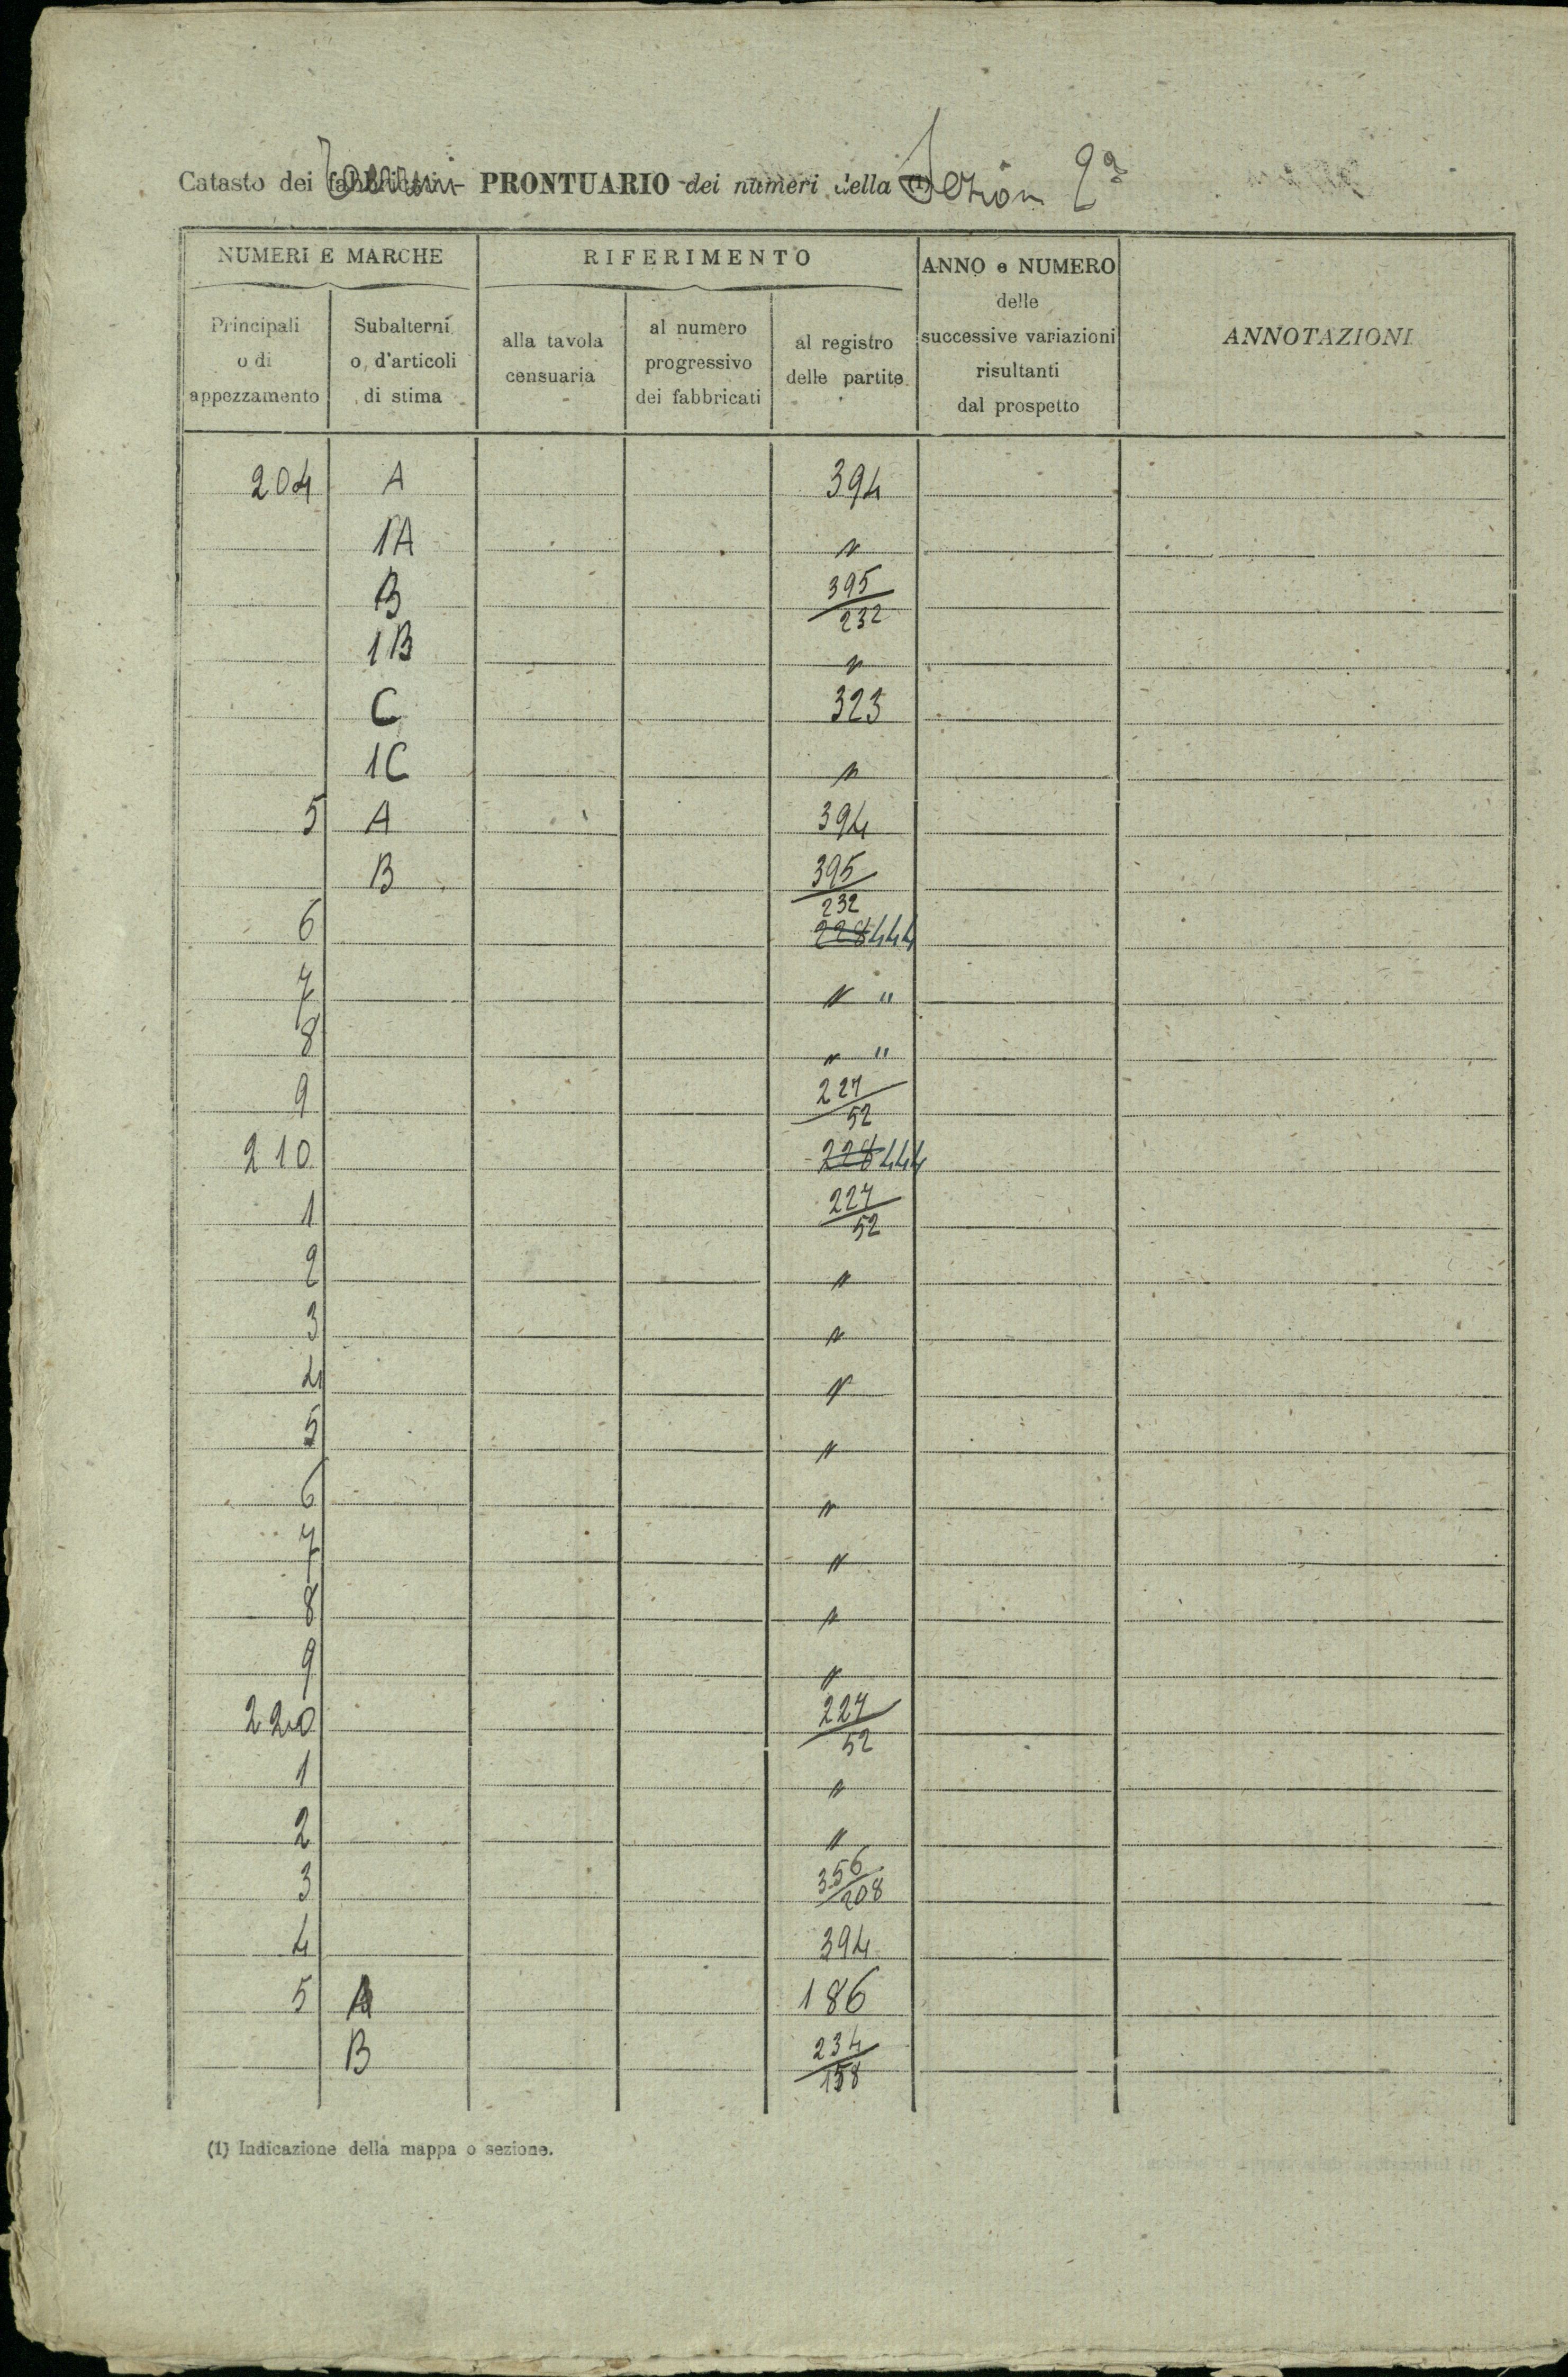 Catasto dei Terreni PRONTUARIO dei numeri della (1) Sezion 2ª
NUMERI E MARCHE RIFERIMENTO ANNO e NUMERO delle successive variazioni risultanti dal prospetto ANNOTAZIONI
Principali o di appezzamento Subalterni o d'articoli di stima alla tavola censuaria al numero progressivo dei fabbricati al registro delle partite
204 A 394
1A "
B 395/232
1B "
C 323
1C "
5 A 394
B 395/232
6 228 444
7 " "
8 " "
9 227/52
210 228 444
1 227/52
2 "
3 "
4 "
5 "
6 "
7 "
8 "
9 "
220 227/52
1 "
2 "
3 356/208
4 394
5 A 186
B 234/158
(1) Indicazione della mappa o sezione.